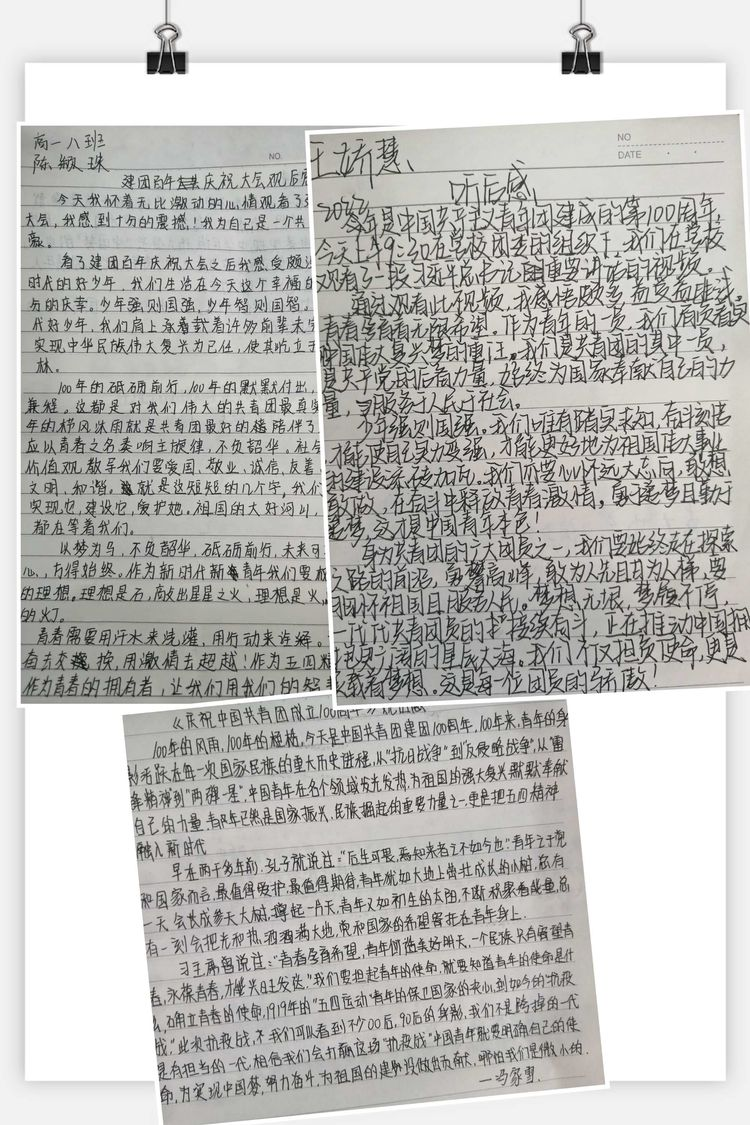 高一八班
陈淑珠
NO.
建团百年庆祝大会观后
今天我怀着无比激动的心情观看了
大会，我感到十分的震撼！我为自己是一个共
看了建团百年庆祝大会之后我感受颇
时代的好少年，我们生活在今天这个幸福的
与的庆幸。少年强则国强，少年智则国智。
代好少年，我们肩上承载着许多前辈未
实现中华民族伟大复兴为已任，使其屹立于
林。
100年的砥砺前行，100年的默默付出，
兼程。这都是对我们伟大的共青团最真
年的栉风沐雨就是共青团最好的
应以青春之名奏响主旋律，不负韶华。社会
价值观，教导我们要爱国、敬业、诚信、友善
文明、和谐。就是这短短的几个字，我们
实现它，建设它，爱护她。祖国的大好河山，
都在等着我们。
以梦为马，不负韶华，砥砺前行，未来可
心，方得始终。作为新时代新青年我们要
的理想。理想是石，敲出星星之火，理想是火，
的灯。
青春需要用汗水来浇灌，用行动来诠释。
奋去交换，用激情去超越！作为五四精
作为青春的拥有者，让我们用我们的智
王娇慧
NO
DATE
听后感
2022
今年是中国共产主义青年团建成的第100周年，
今天上午9:50在学校团委的组织下，我们在学校
观看了一段习近平总书记重要讲话的视频。
通过观看此视频，我感悟颇多，受益匪浅。
青春孕育着无限希望。作为青年的一员，我们肩负着实
中国伟大复兴梦的重任。我们是共青团的其中一员，
是关于党的后备力量，始终为国家奉献自己的力
量，服务于人民于社会。
少年强则国强。我们唯有踏实求知，有
才能使自己实力变强，才能更好地为祖国伟大事业
建设添砖加瓦。我们要心怀远大志向，敢想
敢做，在奋斗中释放青春激情。敢于逐梦且勤于
追梦，这才是中国青年本色！
身为共青团的广大团员之一，我们要始终走在探索
之路的前沿，勇攀高峰，敢为人先且甘为人梯，要
胸怀祖国且服务人民。梦想无垠，梦履不停，
一代代共青团员的接续奋斗，正在推动中国
更为广阔的星辰大海。我们不仅担负使命，更是
载着梦想。这是每一位团员的骄傲！
《庆祝中国共青团成立100周年》观后感
100年的风雨，100年的，今天是中国共青团建团100周年，100年来，青年的身
影活跃在每一次国家民族的重大历史进程，从“抗日战争”到“反侵略战争”，从“雷
锋精神到“两弹一星”，中国青年在各个领域发光发热，为祖国的强大复兴默默奉献
自己的力量，青年已然是国家振兴、民族崛起的重要力量之一，更是把五四精神
融入新时代
早在两千多年前，孔子就说过：“后生可畏，焉知来者之不如今也”，青年之于党
和国家而言，最值得爱护，最值得期待，青年犹如大地上茁壮成长的小树，总有
一天会长成参天大树，撑起一片天，青年又如初生的太阳，不断积聚着能量，总
有一刻会把光和热洒满大地，党和国家的希望寄托在青年身上。
习主席曾说过：“青春孕育希望，青年创造美好明天，一个民族只有寄望青
春，永葆青春，才能兴旺发达。”我们要担起青年的使命，就要知道青年的使命是什
么，确立青春的使命，1919年的“五四运动”青年的保卫国家的决心，到如今的“抗疫
战”，此次抗疫战，我们可以看到不少00后，90后的身影，我们不是垮掉的一代
是有担当的一代，相信我们会打赢这场“抗疫战”中国青年就要明确自己的使
命，为实现中国梦，努力奋斗，为祖国的建设做出贡献，哪怕我们是微小的.
—冯家雪.